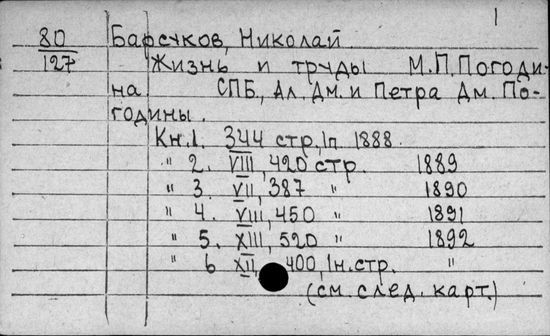 1
80 Барсуков, Николай.
127 Жизнь и труды М.П. Погоди-
на СПБ., Ал. Дм. и Петра Дм. По-
годины.
Кн. 1. 344 стр., 1п 1888.
" 2. VIII, 420 стр. 1889
" 3. VII, 387 " 1890
" 4. VIII, 450 " 1891
" 5. XIII, 520 " 1892
" 6 XII, 400, 1н. стр. "
(см. след. карт.)